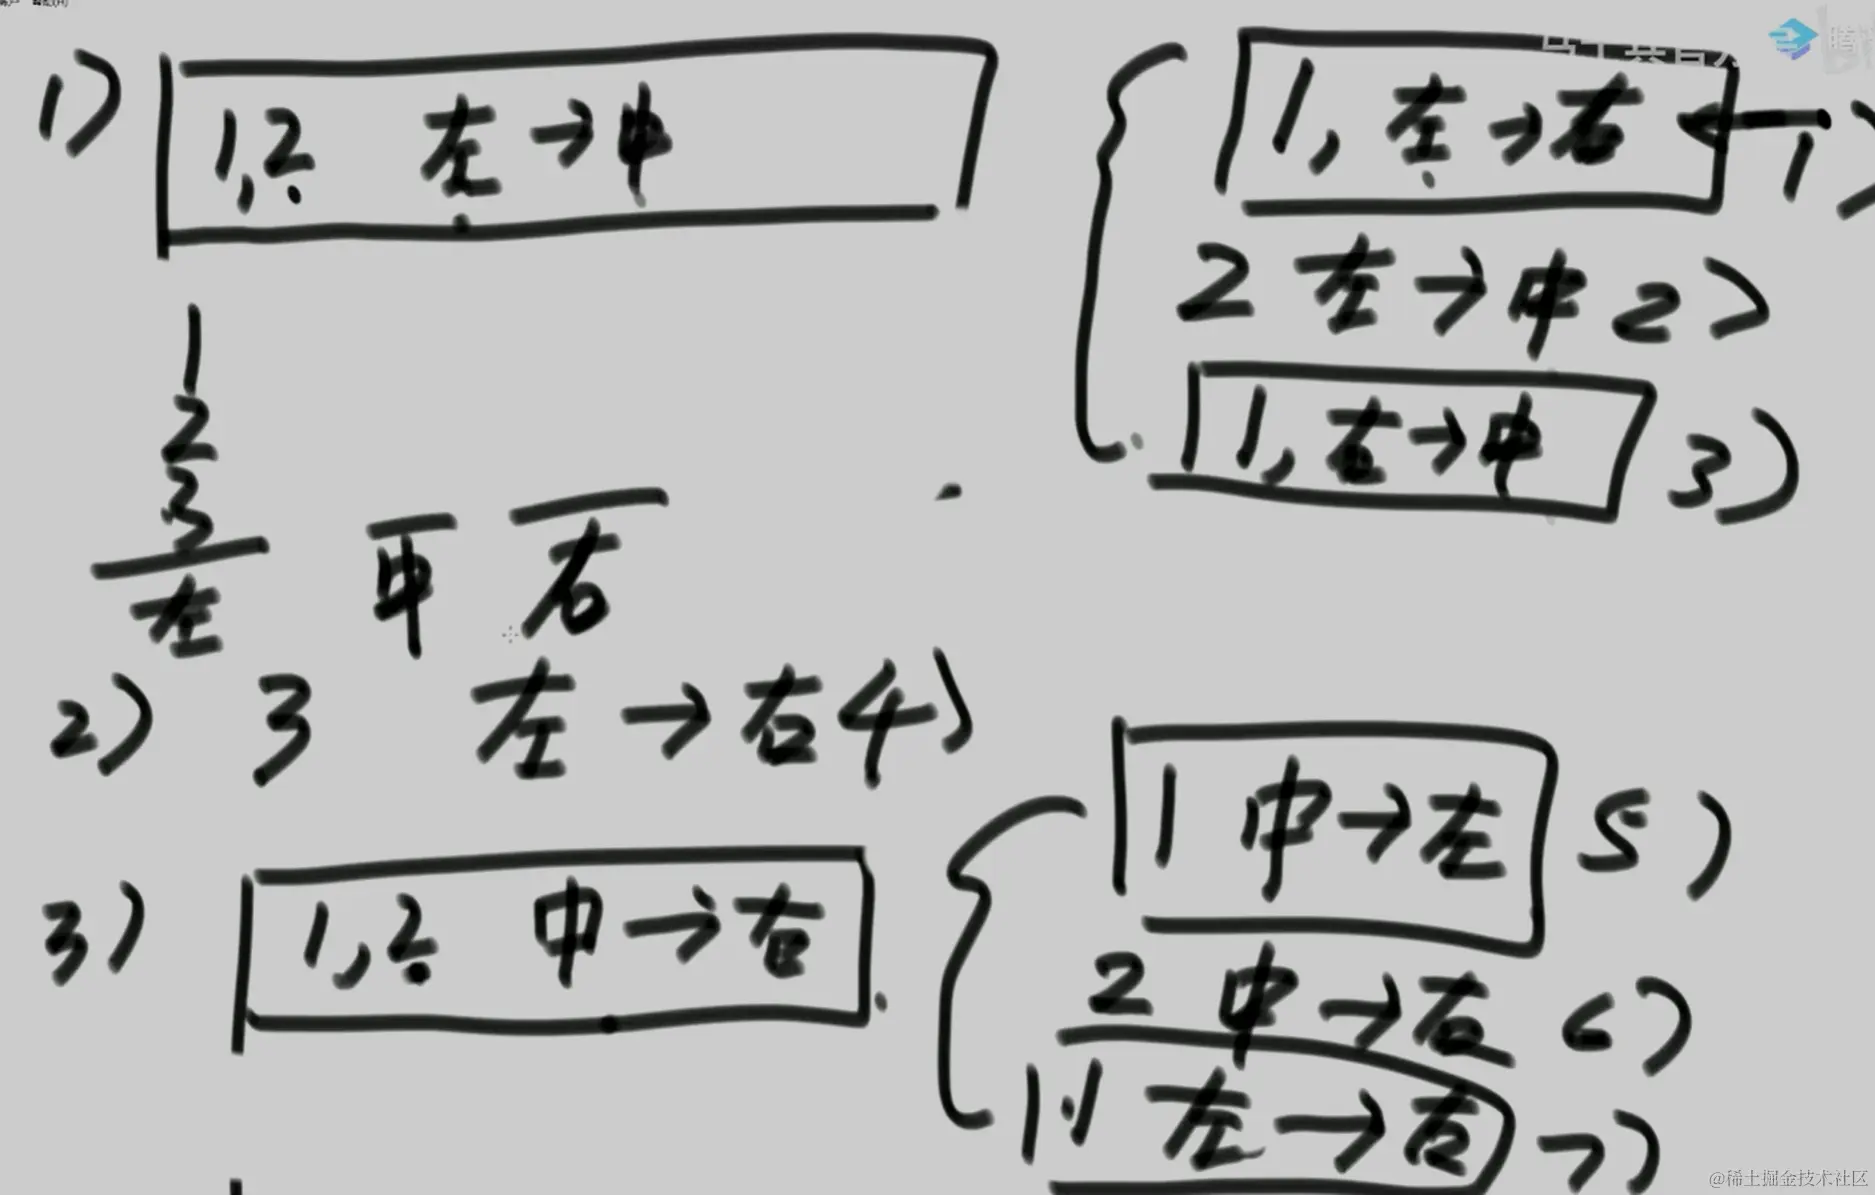 1) 1,2 左→中
1, 左→右 1)
2 左→中 2)
1, 右→中 3)
1
2
3
左 中 右
2) 3 左→右 4)
3) 1,2 中→右
1 中→左 5)
2 中→右 6)
1 左→右 7)
@稀土掘金技术社区